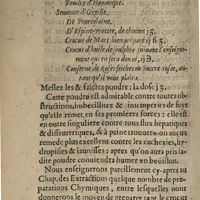 Poudre d'Hepatique.
Semence d'Ozeille.
De Pourcelaine.
D'Espine-vinette, de chacun ʒ.
Crocus de Mars
en ceci
Conserve de Roses seiches au Sucre rosat, au-
tant qu'il vous plaira.
Meslez les & faictes poudre: la dose ʒ.
Cette poudre est admirable contre toutes ob-
structions, imbecillitez & intemperies de foye
qu'elle remet en ses premieres forces: elle est
en outre singuliere contre tous flux hepatiques
& dissenteriques, & à peine trouvera-t'on au-
cun remede plus excellent contre les cachexies, hy-
dropisies & jaunisses: apres qu'on aura pris
ladite poudre conviendra humer un boüillon.
Nous enseignerons pareillement cy-apres au
Chap. des Extractions quelque nombre de pre-
parations Chymiques, entre lesquelles nous
donnerons le moyen de preparer tant le crocus